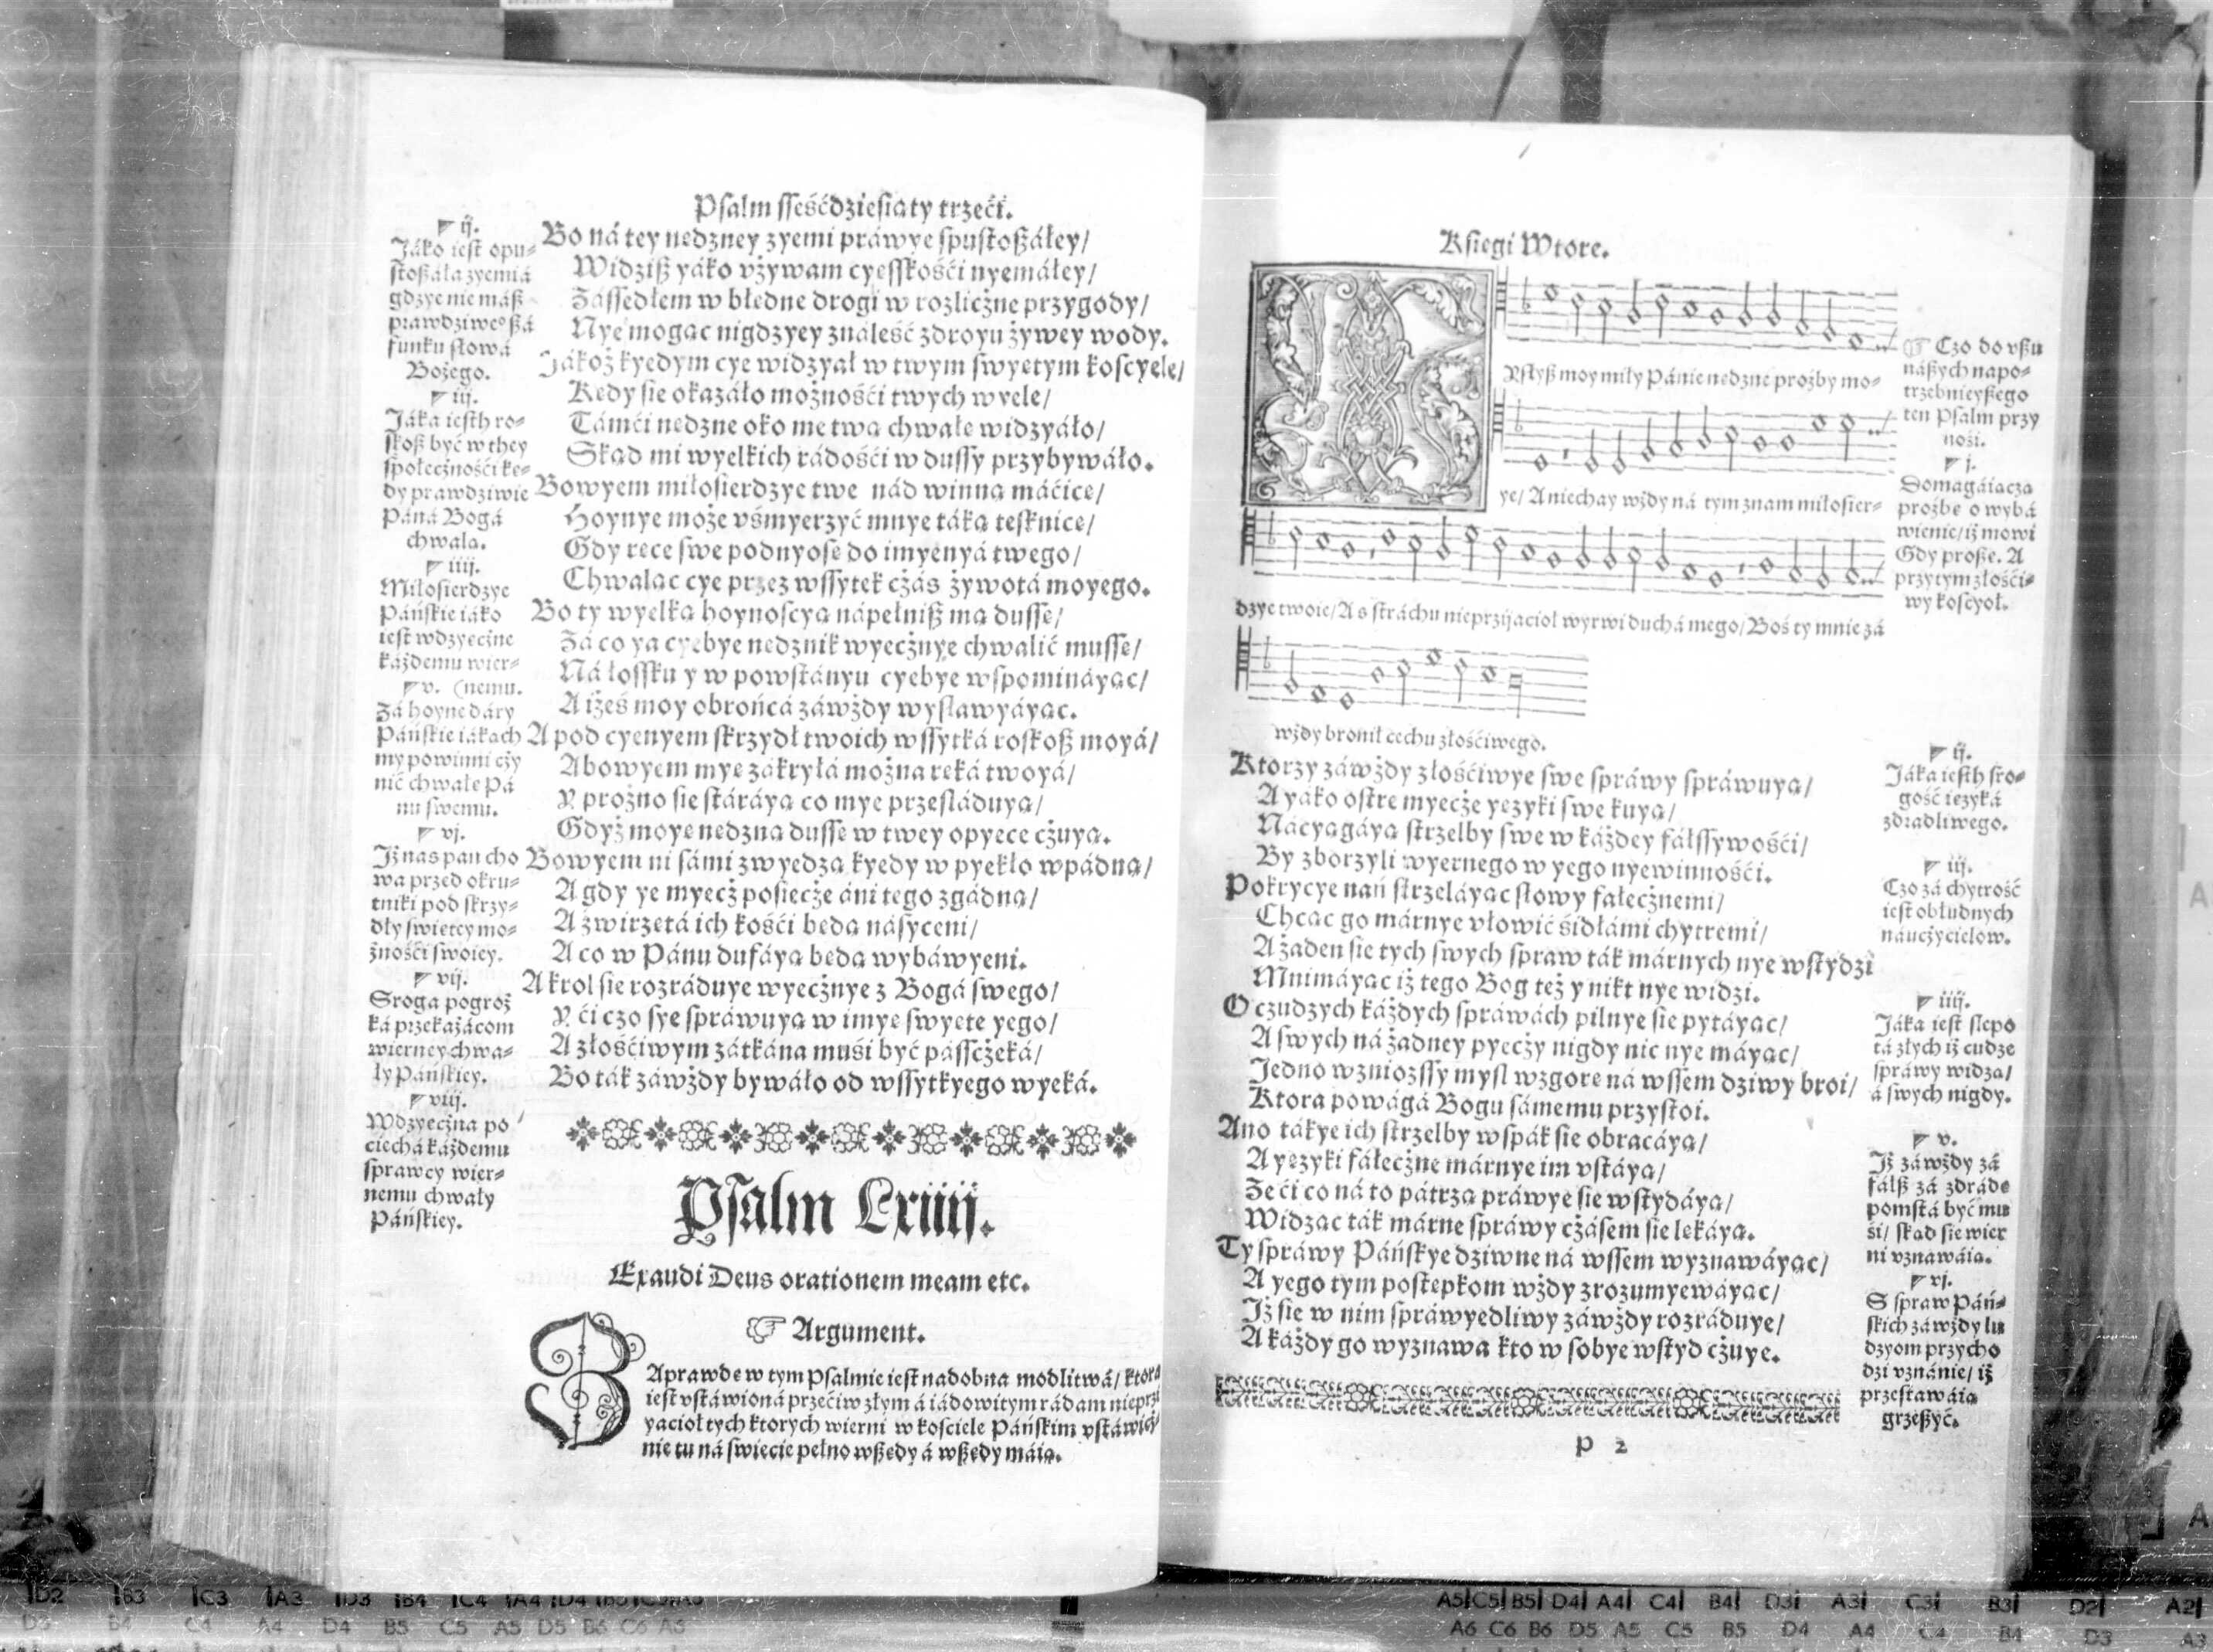 Psalm sseśćdziesiąty trzeći.
Bo ná tey nędzney zyemi práwye spustoßáłey/
Widziß yáko vżywam cyęsskośći nyemáłey/
Zássedłem w błędne drogi w rozlicżne przygody/
Nye mogąc nigdzyey ználeść zdroyu żywey wody.
Jákoż kyedym cye widzyał w twym swyętym koscyele/
Kędy sie okazáło możnośći twych wyele/
Támći nędzne oko me twą chwałę widzyáło/
Skąd mi wyelkich rádośći w dussy przybywáło.
Bowyem miłosierdzye twe nád winną máćicę/
Hoynye może vśmyerzyć mnye táką tesknicę/
Gdy ręce swe podnyosę do imyenyá twego/
Chwaląc cye przez wssytek cżás żywotá moyego.
Bo ty wyelką hoynoscyą nápełniß mą dussę/
Zá co ya cyebye nędznik wyecżnye chwalić mussę/
Ná łossku y w powstányu cyebye wspomináyąc/
A iżeś moy obrońcá záwżdy wysławyáyąc.
A pod cyenyem skrzydł twoich wssytká roskoß moyá/
Abowyem mye zákryłá można ręká twoyá/
Y prożno sie stáráyą co mye prześláduyą/
Gdyż moye nędzną dussę w twey opyece cżuyą.
Bowyem ni sámi zwyedzą kyedy w pyekło wpádną/
A gdy ye myecż posiecże áni tego zgádną/
A zwirzętá ich kośći będą násyceni/
A co w Pánu dufáyą będą wybáwyeni.
A krol sie rozráduye wyecżnye z Bogá swego/
Y ći czo sye spráwuyą w imye swyęte yego/
A złośćiwym zátkána muśi być pásscżeká/
Bo ták záwżdy bywáło od wssytkyego wyeká.
◤ ij.
Jáko iest opu-
stoßáła zyemiá
gdzye nie máß
prawdziwe° ßá
funku słowá
Bożego.
◤ iij.
Jáka iesth ro-
skoß być w they
społecżnośći kę-
dy prawdziwie
Páná Bogá
chwalą.
◤ iiij.
Miłosierdzye
Páńskie iáko
iest wdzyęcżne
káżdemu wier-
◤ v. (nemu.
Zá hoyne dáry
Páńskie iákąch
my powinni cży
nić chwałę Pá
nu swemu.
◤ vj.
Jż nas pan cho
wa przed okru-
tniki pod skrzy-
dły swiętey mo-
żnośći swoiey.
◤ vij.
Sroga pogroż
ká przekażácom
wierney chwa-
ły Páńskiey.
◤ viij.
Wdzyęcżna po
ciechá káżdemu
sprawcy wier-
nemu chwały
Páńskiey.
Psalm Lxiiij.
Exaudi Deus orationem meam etc.
☞ Argument.
Zaprawdę w tym Psalmie iest nadobna modlitwá/ ktorą
iest vstáwioná przećiw złym á iádowitym rádam nieprzi
yacioł tych ktorych wierni w kosciele Páńskim vstáwicż-
nie tu ná swiecie pełno wßędy á wßędy máią.
Ksiegi Wtore.
Vsłyß moy miły Pánie nędzné proźby mo-
ye/ A niechay wżdy ná tym znam miłosier-
dzye twoie/ A s stráchu nieprzijacioł wyrwi duchá mego/ Boś ty mnie zá
wżdy bronił cechu złośćiwego.
Ktorzy záwżdy złośćiwye swe spráwy spráwuyą/
A yáko ostre myecże yęzyki swe kuyą/
Náćyągáyą strzelby swe w káżdey fálssywośći/
By zborzyli wyernego w yego nyewinnośći.
Pokrycye nań strzeláyąc słowy fałecżnemi/
Chcąc go márnye vłowić śidłámi chytremi/
A żaden sie tych swych spraw ták márnych nye wstydzi
Mnimáyąc iż tego Bog też y nikt nye widzi.
O czudzych káżdych spráwách pilnye sie pytáyąc/
A swych ná żadney pyecży nigdy nic nye máyąc/
Jedno wzniozssy mysl wzgorę ná wssem dziwy broi/
Ktora powagá Bogu sámemu przystoi.
Ano tákye ich strzelby wspák sie obracáyą/
A yęzyki fáłecżne márnye im vstáyą/
Że ći co ná to pátrzą práwye sie wstydáyą/
Widząc ták márne spráwy cżásem sie lękáyą.
Ty spráwy Páńskye dziwne ná wssem wyznawáyąc/
A yego tym postępkom wżdy zrozumyewáyąc/
Jż sie w nim spráwyedliwy záwżdy rozráduye/
A káżdy go wyznawa kto w sobye wstyd cżuye.
☞ Czo do vßu
náßych napo-
trzebnieyßego
ten Psalm przy
nośi.
◤ j.
Domagáiącza
proźbę o wybá
wienie/ iż mowi
Gdy proßę. A
przytym złośći-
wy koscyoł.
◤ ij.
Jáka iesth sro-
gość ięzyká
zdradliwego.
◤ iij.
Czo zá chytrość
iest obłudnych
náucżycielow.
◤ iiij.
Jáka iest slepo
tá złych iż cudze
spráwy widzą/
á swych nigdy.
◤ v.
Jż záwżdy zá
fałß zá zdrádę
pomstá być mu
śi/ skąd sie wier
ni vznawáią.
◤ vj.
S spraw Páń-
skich záwżdy lu
dzyom przycho
dzi vznánie/ iż
przestawáią
grzeßyć.
P 2
D2 B3 C3 A3 D3 B4 C4 A4 D4 B5 C5 A5
D3 B4 C4 A4 D4 B5 C5 A5 D5 B6 C6 A6
A5 C5 B5 D4 A4 C4 B4 D3 A3 C3 B3 D2 A2
A6 C6 B6 D5 A5 C5 B5 D4 A4 C4 B4 D3 A3
A
A